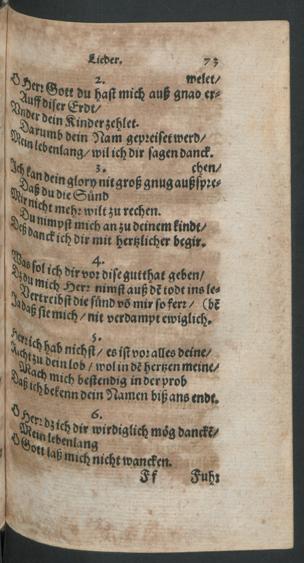 Lieder. 73
2. welet/
O Herr Gott du hast mich auß gnad er-
Auff diser Erdt/
Vnder dein Kinder zehlet.
Darumb dein Nam gepreiset werd/
Mein lebenlang/ wil ich dir sagen danck.
3. chen/
Ich kan dein glory nit groß gnug außspre-
Daß du die Sünd
Mir nicht mehr wilt zu rechen.
Du nimpst mich an zu deinem kindt/
Deß danck ich dir mit hertzlicher begir.
4.
Was sol ich dir vor dise gutthat geben/
Dz du mich Herr nimst auß dẽ todt ins le-
Vertreibst die sünd võ mir so ferr/ (bẽ
Ja daß sie mich/ nit verdampt ewiglich.
5.
Herr ich hab nichst/ es ist vor alles deine/
Nicht zu dein lob/ wol in dẽ hertzen meine/
Mach mich bestendig in der prob
Daß ich bekenn dein Namen biß ans endt.
6.
O Herr dz ich dir wirdiglich mög danckẽ/
Mein lebenlang
O Gott laß mich nicht wancken.
Ff Fuhr